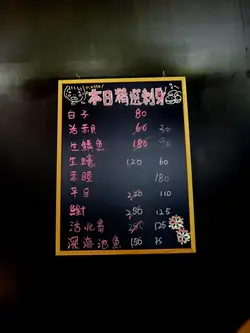 本日精選刺身
白子 80
活赤貝 60 30
生鯖魚 180 90
生蠔 120 60
赤睦 180
平目 220 110
鮋 250 125
活北寄 250 125
深海池魚 150 75